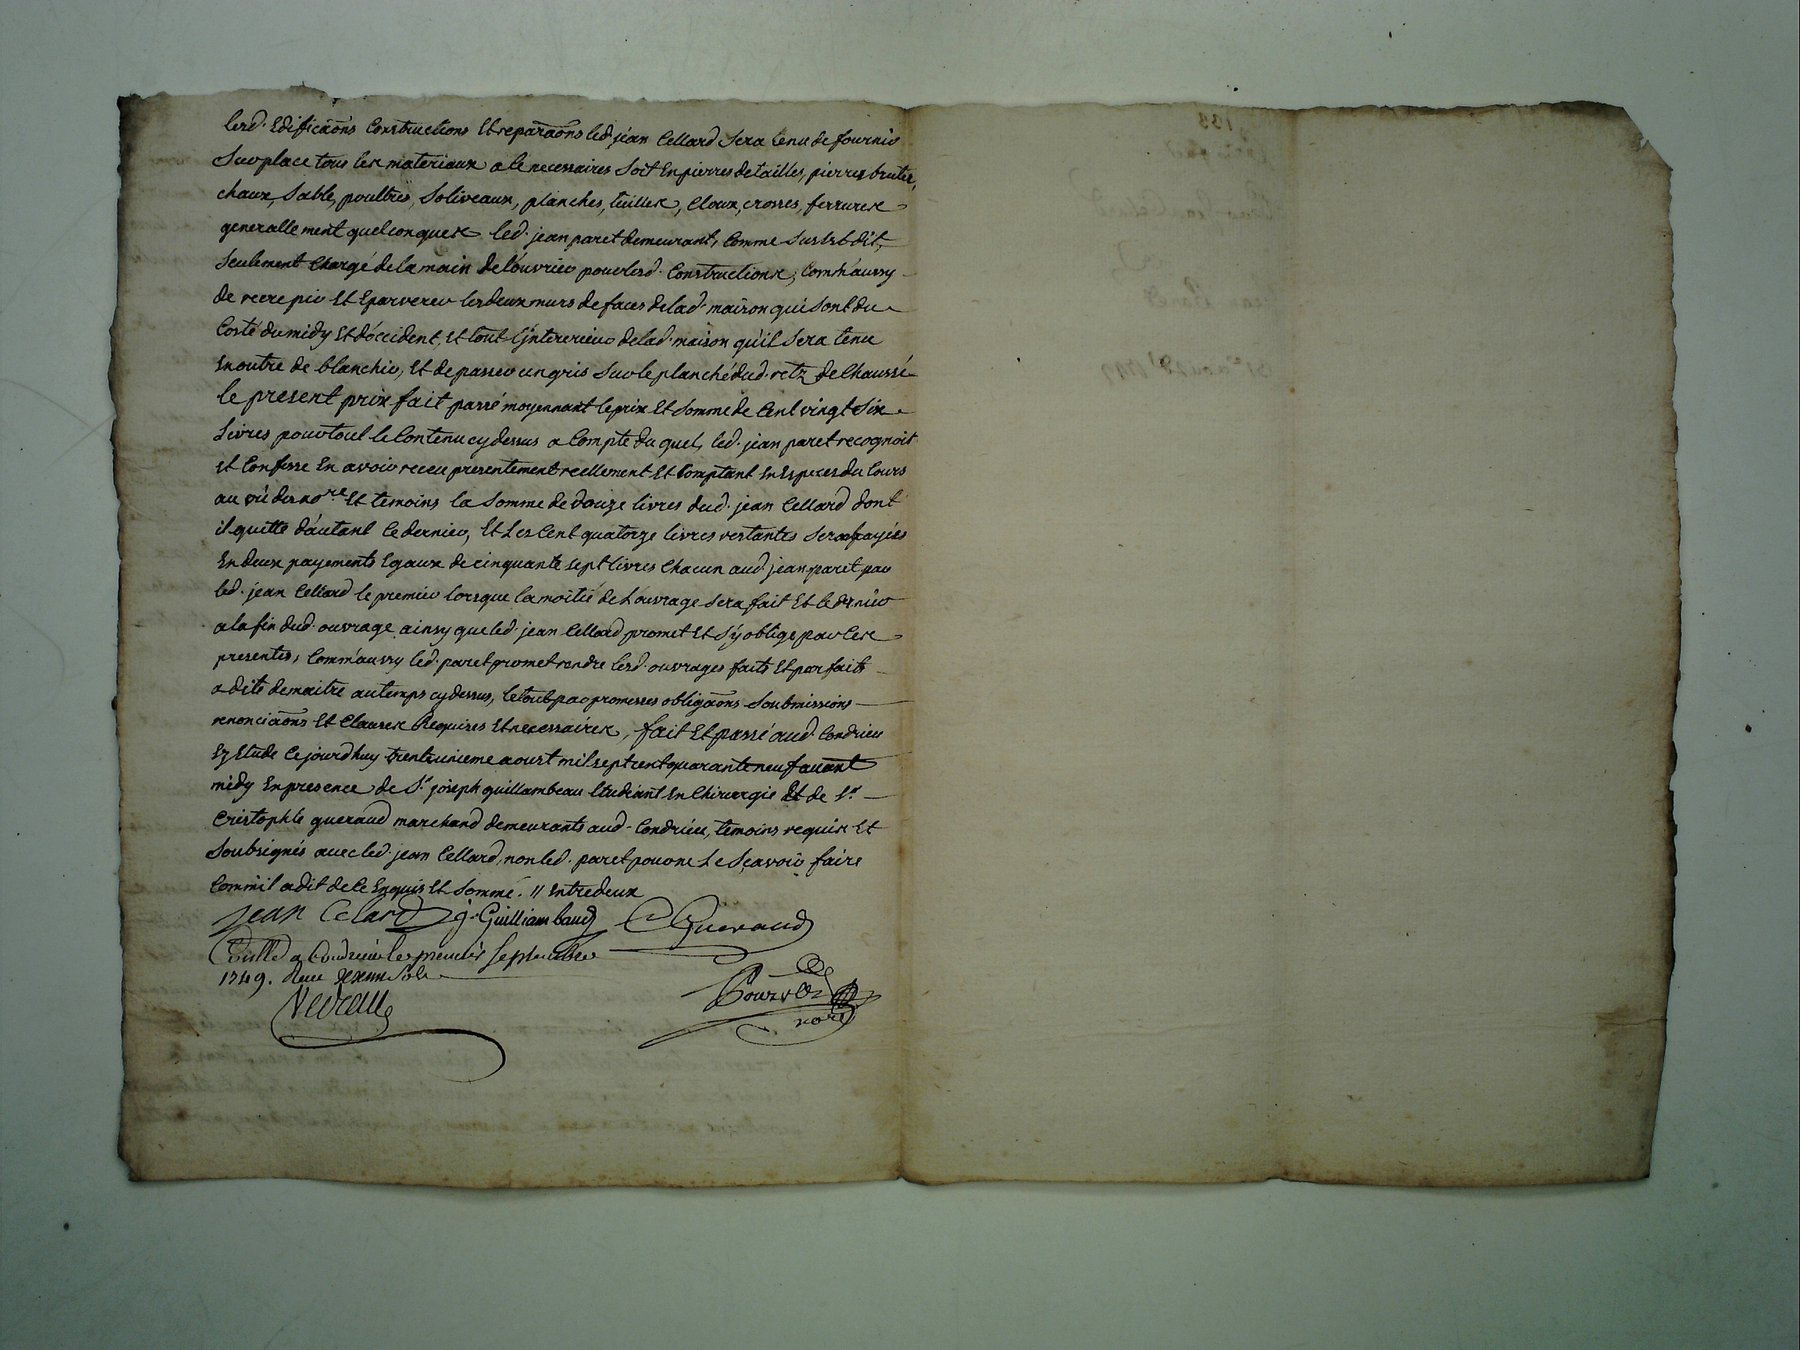 lesd. Edificaõns Constructions Et reparaõns led. jean Cellard Sera tenu de fournir
Sur place tous les materiaux a ce necessaires Soit En pierres de tailles, pierres brutes,
chaux, Sable, poultres, Soliveaux, planches, tuilles, Cloux, crosses, ferrures
generallement quelconques led. jean paret demeurant, Comme Sus Est dit,
Seulement Chargé de la main de l'ouvrier pour lesd. Constructions, Comm'aussy
de recrepir Et Eparverer les deux murs de faces de lad. maison qui Sont du
Costé du midy Et d'occident, Et tout L'interieur de lad. maison qu'il Sera tenu
En outre de blanchir, Et de passer un gris Sur le planché dud. retz de Chaussé
le present prix fait passé moyennant le prix Et Somme de Cent vingt Six
Livres pour tout le Contenu cy dessus a Compte du quel, led. jean paret recognoit
Et Confesse En avoir receu presentement reellement Et Comptant En Especes du Cours
au vû des no.re Et temoins la Somme de Douze livres dud. jean Cellard dont
il quitte d'autant Ce dernier, Et Les Cent quatorze livres restantes Seront payées
En deux payements Egaux de cinquante sept livres Chacun aud. jean paret par
led. jean Cellard le premier lorsque la moitié de L'ouvrage Sera fait Et le dernier
a la fin dud. ouvrage ainsy que led. jean Cellard promet Et S'y oblige par Ces
presentes, Comm'aussy led. paret promet rendre lesd. ouvrages faits Et parfaits
a dite de maitre au temps cy dessus, le tout par promesses obligaõns Soubmissions
renonciaõns Et Clauses Requises Et necessaires, fait Et passé aud. Condrieu
Ez Etude Ce jourd'huy trente unieme aoust mil sept cent quarante neuf avant
midy En presence de S.r joseph guillambeau Etudiant En Chirurgie Et de S.r
Cristophle gueraud marchand demeurants aud. Condrieu, temoins requis Et
Soubsignés avec led. jean Cellard, non led. paret pour ne Le Sçavoir faire
Comm'il a dit de Ce Enquis Et Sommé. // Entre deux
jean Celard j. Guilliambaud C Gueraud
Conllé a Condrieu le premier Septembre
1749. Reçu Sols
no.re
133